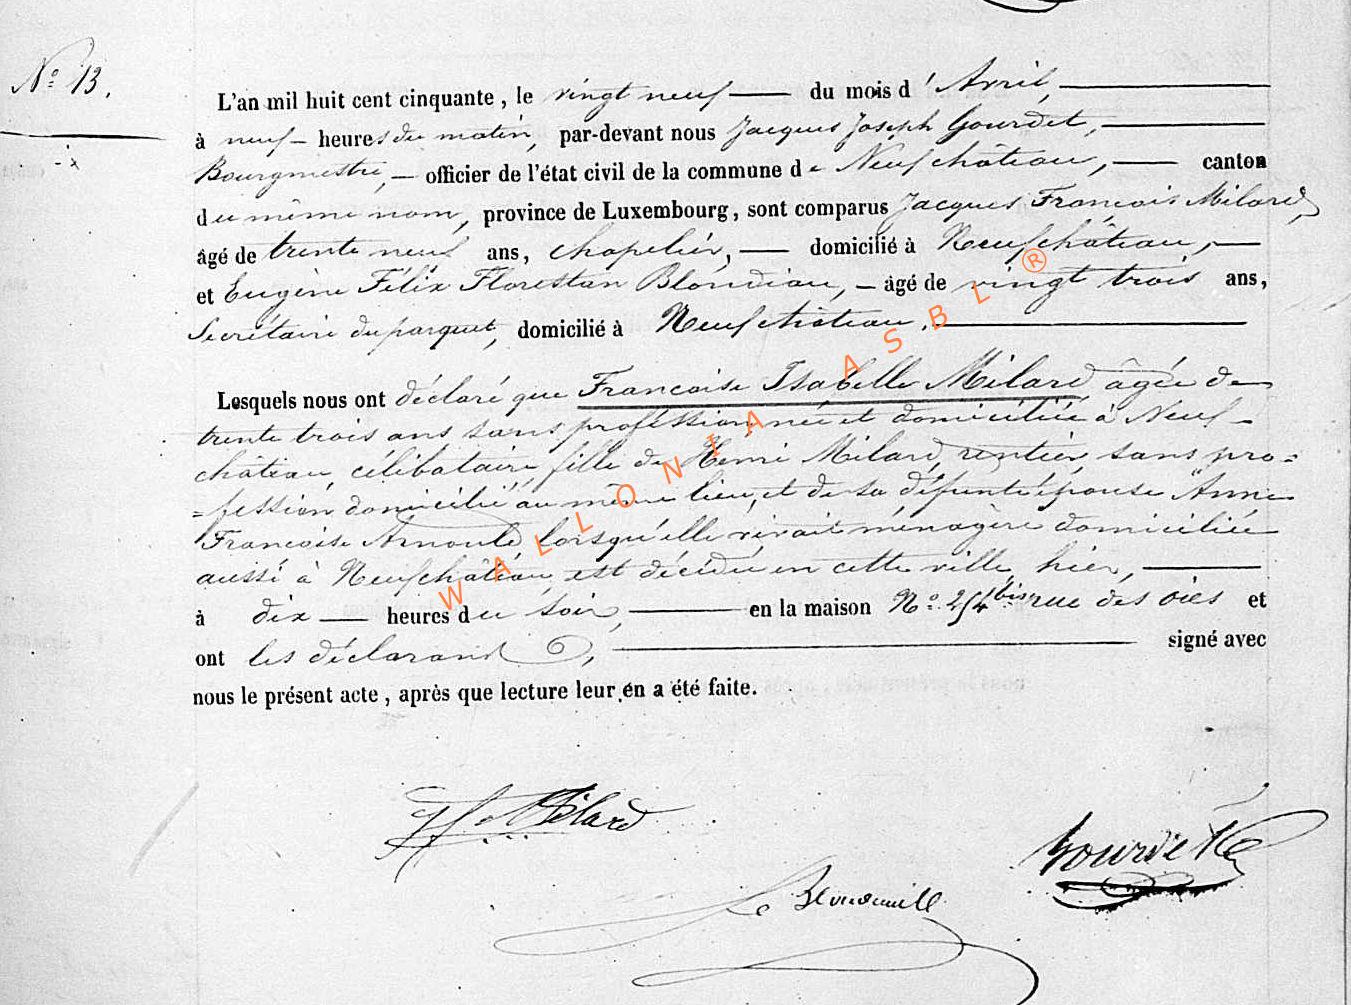 N° 13.
L'an mil huit cent cinquante, le vingt neuf du mois d'Avril,
à neuf heures du matin, par-devant nous Jacques Joseph Gourdet,
Bourgmestre, officier de l'état civil de la commune de Neufchâteau, canton
du même nom, province de Luxembourg, sont comparus Jacques François Milard,
âgé de trente neuf ans, chapelier, domicilié à Neufchâteau,
et Eugène Félix Florestan âgé de vingt trois ans,
Secrétaire du parquet, domicilié à Neufchâteau.
Lesquels nous ont déclaré que Françoise Isabelle Milard âgée de
trente trois ans sans profession née et domiciliée à Neuf-
château, célibataire, fille de Henri Milard, rentier, sans pro=
=fession domicilié au même lieu, et de sa défunte épouse Anne
Françoise Arnould lorsqu'elle vivait ménagère domiciliée
aussi à Neufchâteau, est décédée en cette ville, hier,
à dix heures du soir, en la maison N° 254 bis rue des oies et
ont les déclarans signé avec
nous le présent acte, après que lecture leur en a été faite.
Milard
Gourdet
WALLONIA ASBL ®